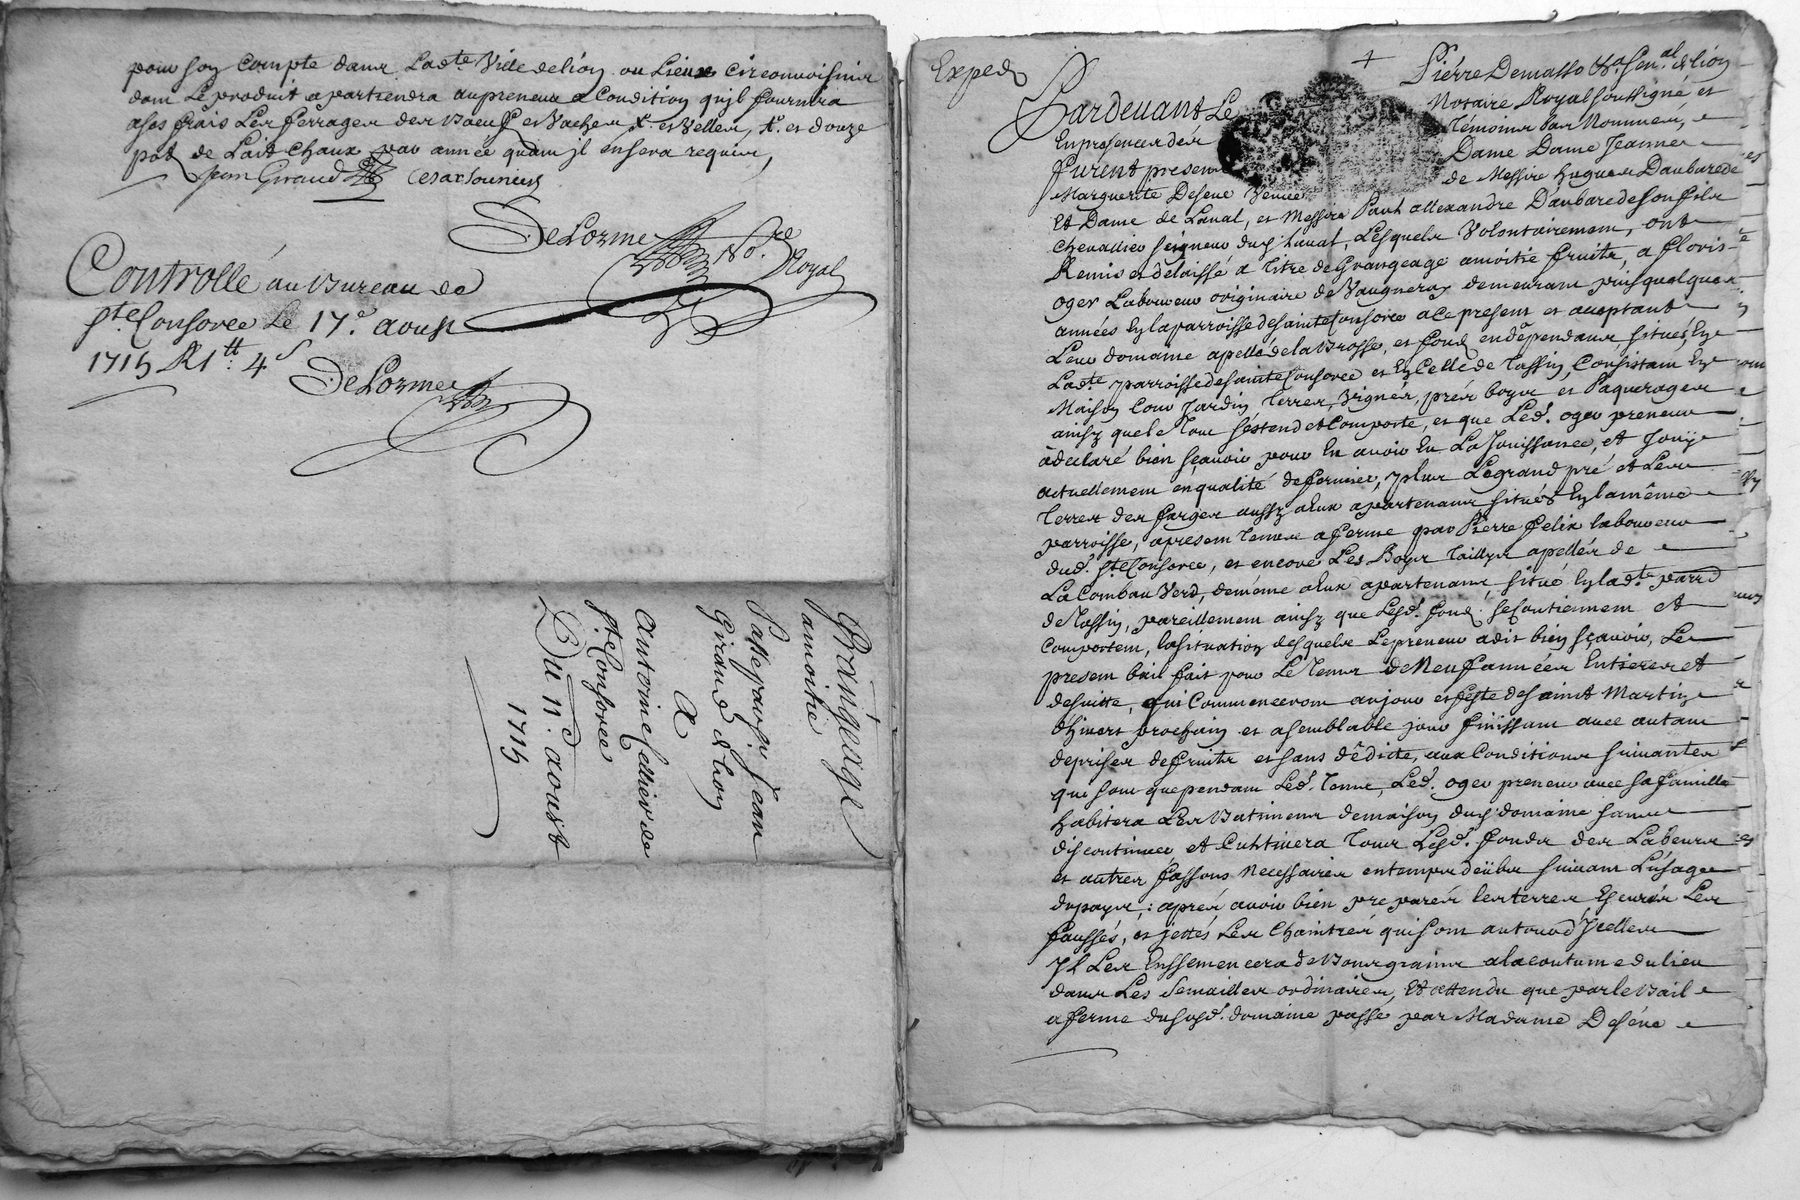 pour son compte dans Ladte Ville de lion ou Lieux circonvoisins
dont Le produit apartiendra au preneur a Condition qu'jl fournira
a ses frais Les ferrages des Boeufs et Vaches &. et Velles, &. et douze
pots de Lait Chaux par année quant jl en sera requis,
Jean Giraud
DeLorme No.re Royal
Controllé áu Bureau de
Ste Consorce Le 17e. aoust
1715 R 1tt. 4s
DeLorme
Grangeage
amoitie
Passé par sr. Jean
Giraud de Lion
A
Antoine Cellier de
Ste Consorce
Du 11e. aoust
1715
Exped
Pierre Demasso &a. Sen.al de lion
Pardevant Le Notaire Royal soussigné et
En presences des témoins bas Nommés,
furent presens Dame Dame Jeanne
Marguerite Deseve Veuve de Messire hugues Daubarede
Et Dame de Laval, et Messire Paul allexandre Daubarede son fils
Chevallier seigneur dud. Laval, Lesquels Volontairement, ont
Remis et delaissé a titre de Grangeage amoitié fruits, a floris
oger Laboureur originaire de Vaugneray demeurant puis quelques
années En la parroisse de sainte Consorce a ce present et acceptant
Leur domaine apellé de la Brosse, et fonds en dépendans, situés En
Ladte. parroisse de sainte Consorce et En Celle de Tassin, Consistant En
Maison Cour Jardin, terres, Vignes, prés boys et Paquerages
ainsy que le tout s'éstend et Comporte, et que Led. oger preneur
à declaré bien sçavoir pour En avoir Eu La Jouissance, et Jouÿr
actuellement en qualité de fermier, plus Le grand pré et Leur
terres des farges aussy a Eux apartenans situés En la même
parroisse, a present tenus a ferme par Pierre felix laboureur
dud. Ste Consorce, et encore Les Boys taillys apellés de
La Combau Verd, de même a Eux apartenans, situé En ladte. parr.
de Tassin, pareillement ainsy que Lesd. fonds se Contiennent et
Comportent, la situation desquels Le preneur a dit bien sçavoir, Le
present bail fait pour Le tems de Neuf années Entieres et
de suitte, qui Commenceront au jour et feste de saint Martin
d'hivert prochain et a semblable jour finissant avec autant
de prises de fruits et sans dédicte, aux Conditions suivantes
qui sont que pendant Led. terme, Led. oger preneur avec sa famille
habitera Les Batimens de maison dud. domaine sans
discontinuer et Cultivera tous Lesd. fonds des Labeurs
et autres fassons Necessaires en temps deübs suivant L'úsage
du pays, : aprés avoir bien preparés les terres Ecurés Les
faussés, et jettés Les Chaintrés qui sont autour d'Jcelles
Jl Les Enssemencera de Bons grains a la coutume du lieu
dans Les Semailles ordinaires, Et attendu que par le Bail
a ferme du susd. domaine passe par Madame Deséve